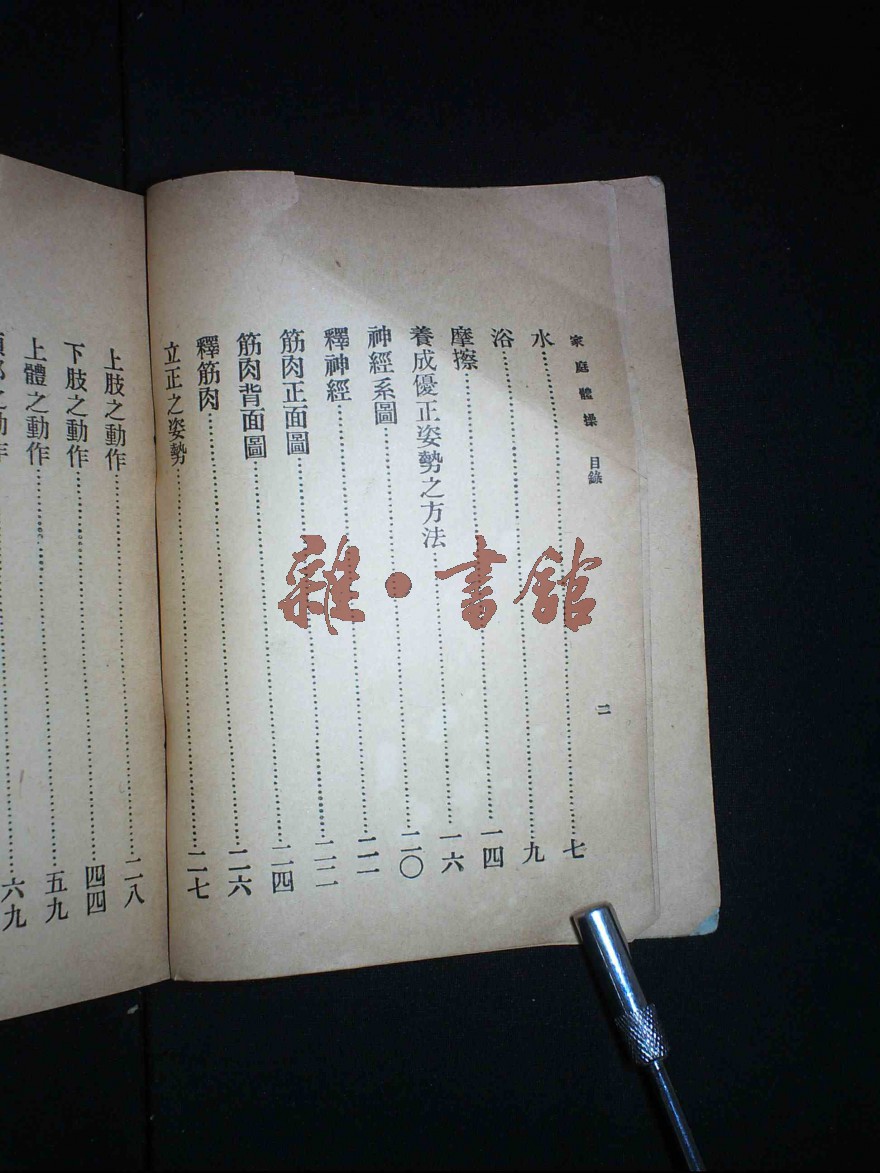 家庭體操 目錄 二
水……七
浴……九
摩擦……一四
養成優正姿勢之方法……一六
神經系圖……二〇
釋神經……二一
筋肉正面圖……二二
筋肉背面圖……二四
釋筋肉……二六
立正之姿勢……二七
上肢之動作……二八
下肢之動作……四四
上體之動作……五九
之動作……六九
雜·書館